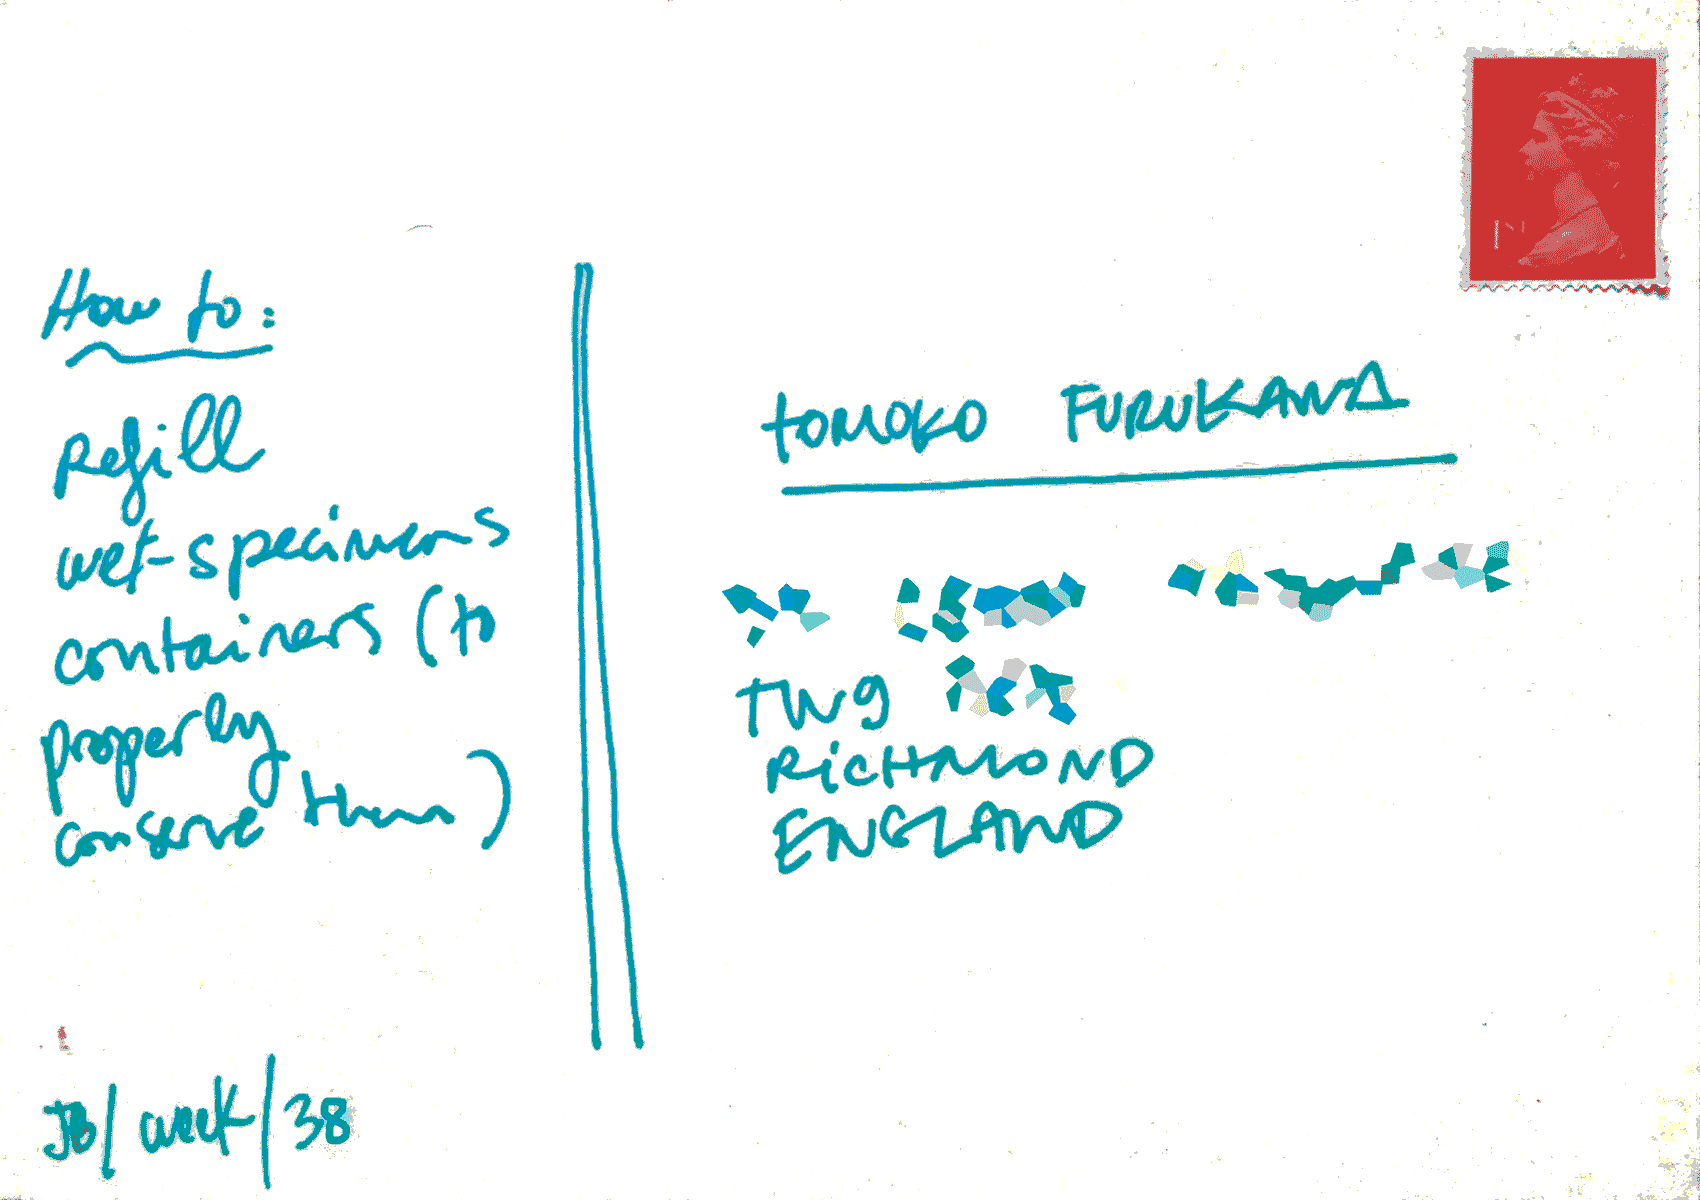 How to:
Refill
wet-specimens
containers (to
properly
conserve them)
JB/week/38
TOMOKO FURUKAWA
TW9
RICHMOND
ENGLAND